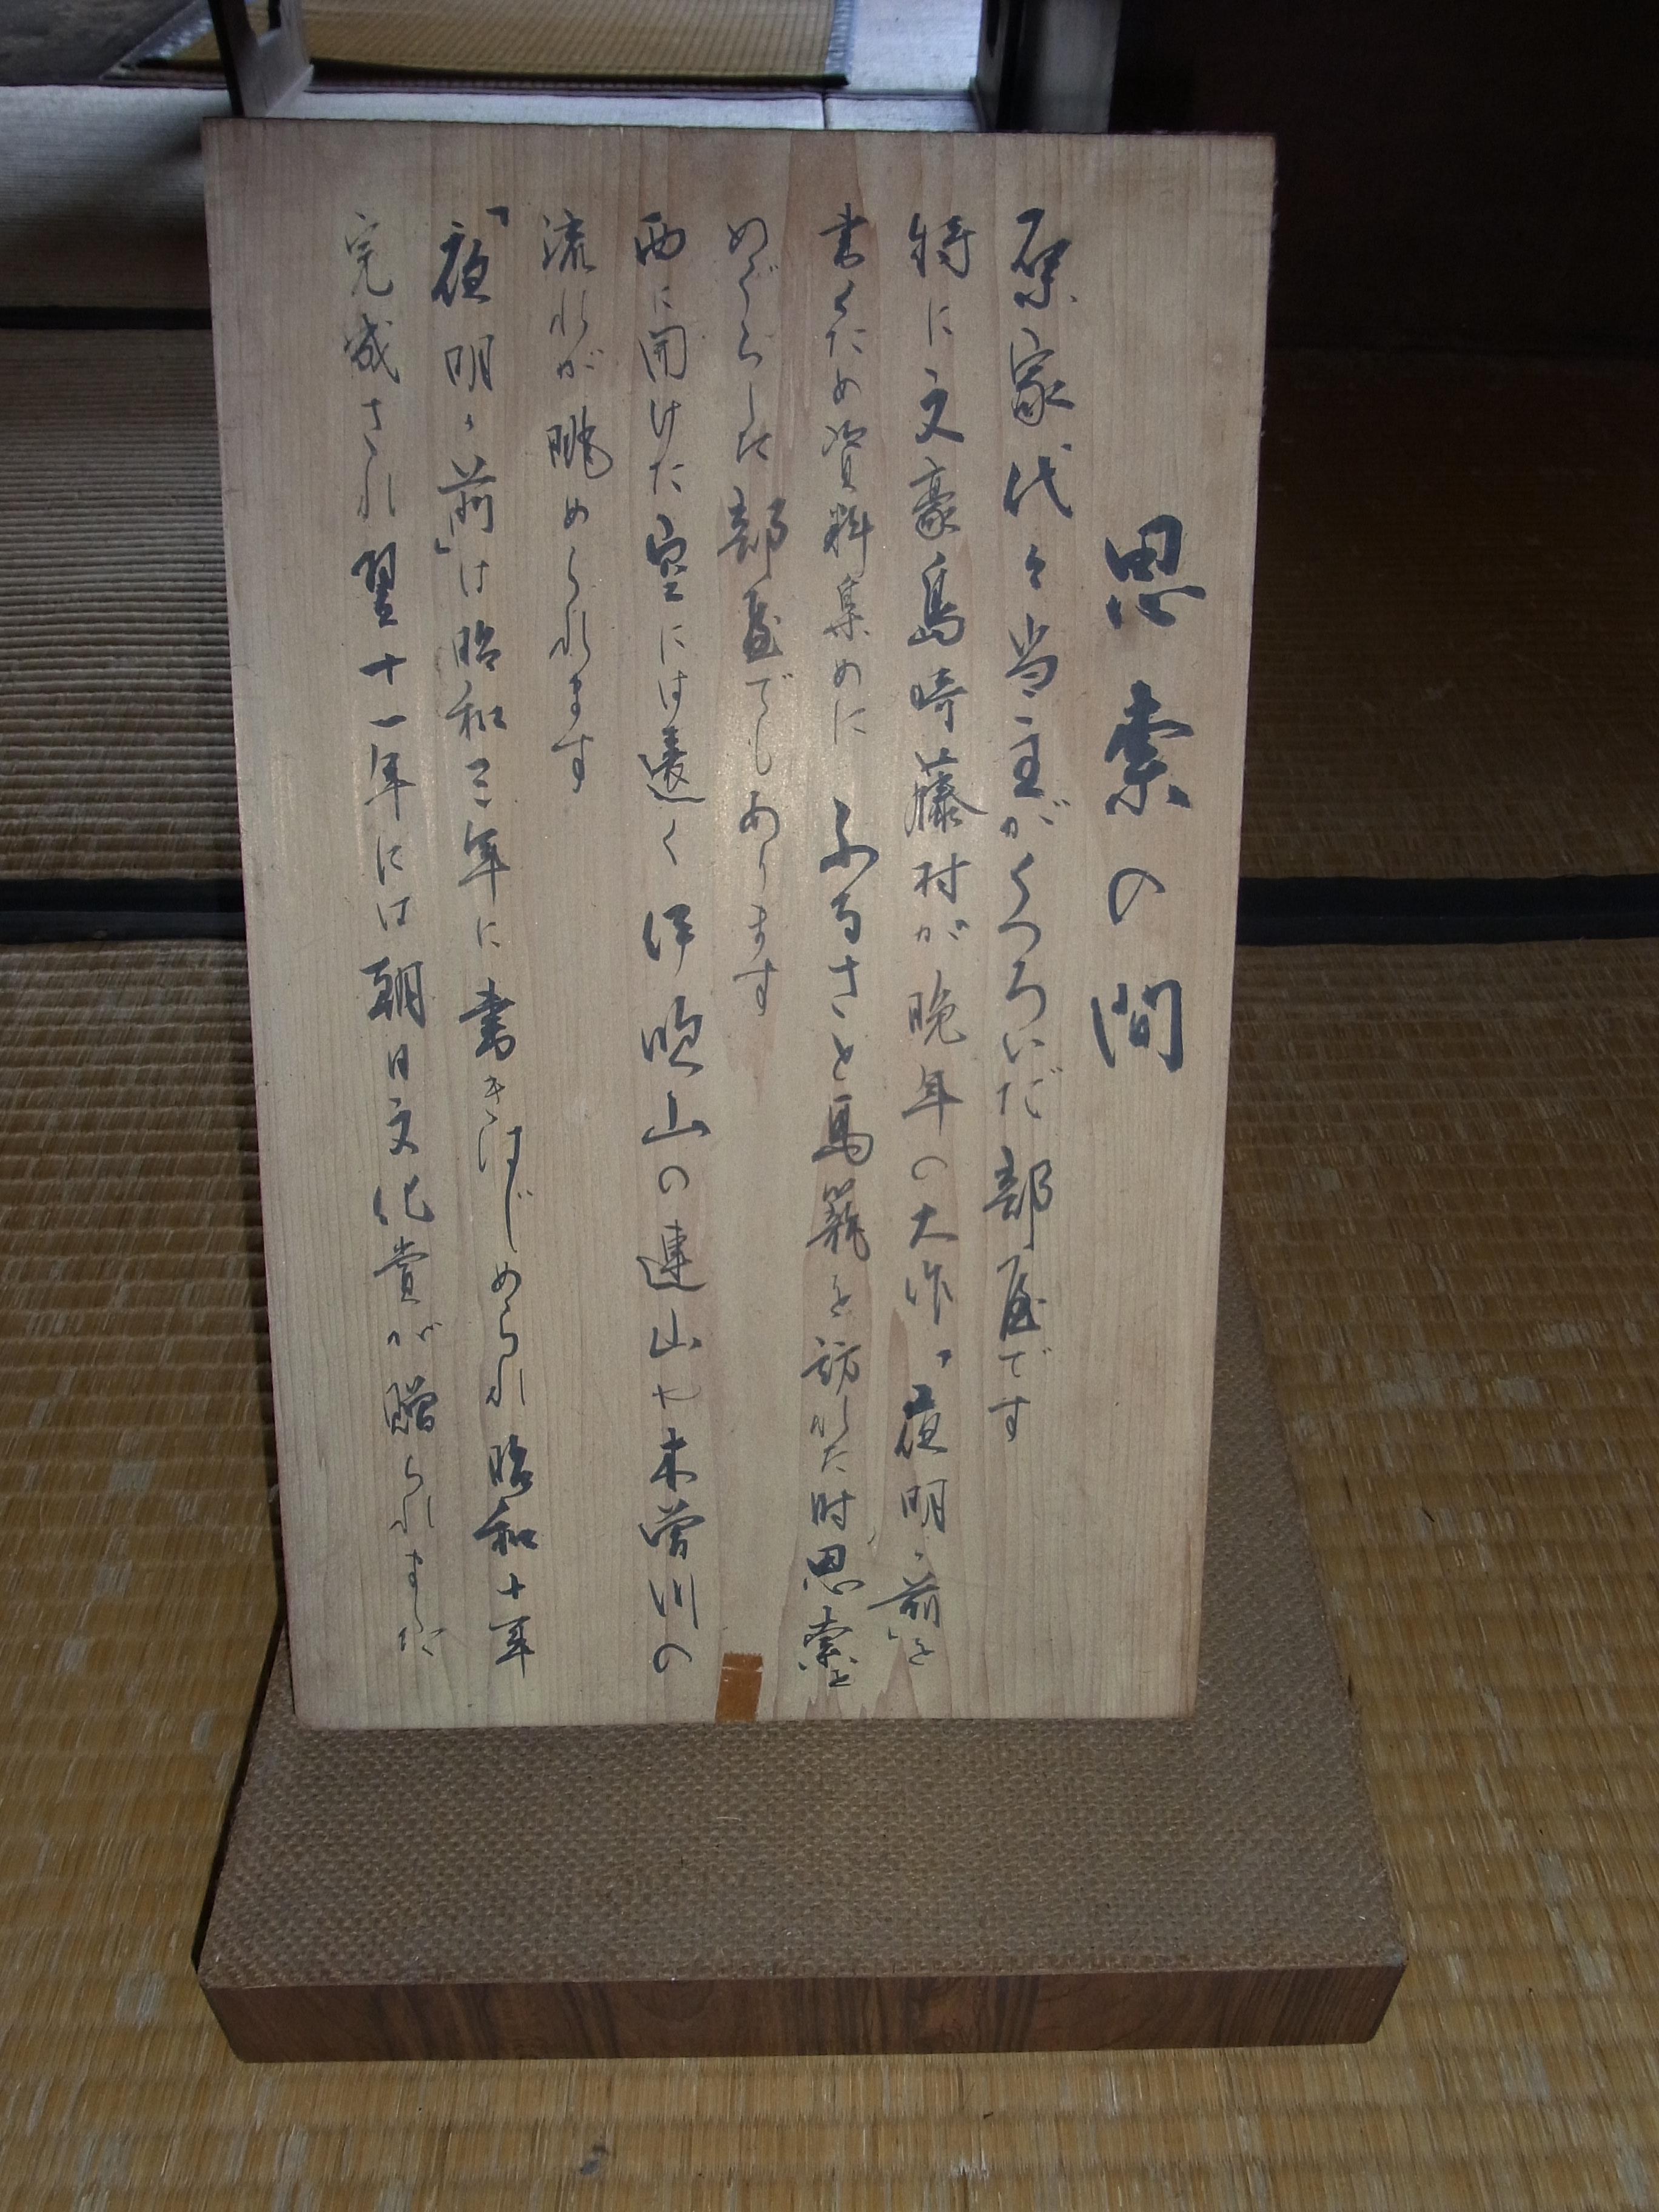 思索の間
原家代々当主がくつろいだ部屋です
特に文豪島崎藤村が晩年の大作「夜明け前」を
書くため資料集めにふるさと馬籠を訪れた時思索を
めぐらした部屋でもあります
西に開けた空には遠く伊吹山の連山や木曽川の
流れが眺められます
「夜明け前」は昭和三年に書きはじめられ昭和十年
完成され翌十一年には朝日文化賞が贈られました